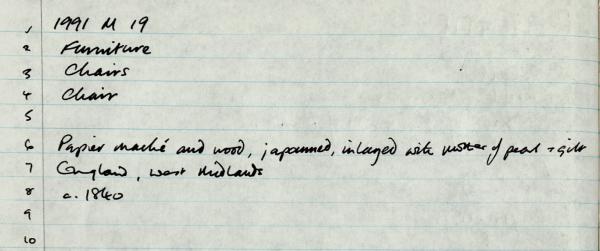 1 1991 M 19
2 Furniture
3 Chairs
4 Chair
5
6 Papier maché and wood, japanned, inlayed with mother of pearl + gilt
7 England, West Midlands
8 c. 1840
9
10